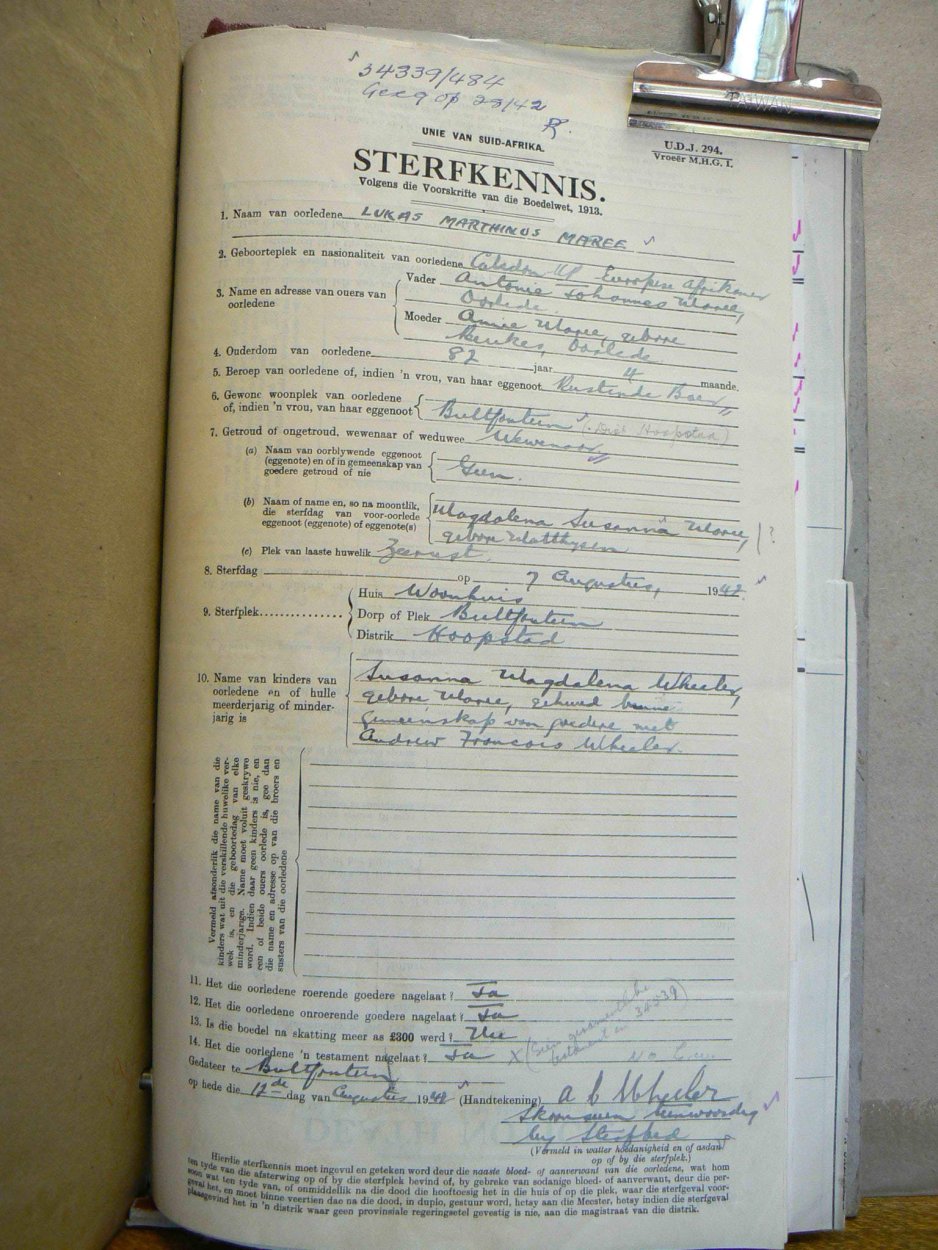 34339/484
UNIE VAN SUID-AFRIKA.
U.D.J. 294.
Vroeër M.H.G. I.
STERFKENNIS.
Volgens die Voorskrifte van die Boedelwet, 1913.
1. Naam van oorledene LUKAS MARTHINUS MAREE
2. Geboorteplek en nasionaliteit van oorledene Caledon KP Europese Afrikaner
3. Name en adresse van ouers van oorledene
Vader Antonie Johannes Maree,
Oorlede.
Moeder Annie Maree, gebore
Oorlede
4. Ouderdom van oorledene 82 jaar 4 maande.
5. Beroep van oorledene of, indien 'n vrou, van haar eggenoot Rustende Boer
6. Gewone woonplek van oorledene
of, indien 'n vrou, van haar eggenoot Bultfontein (Dist. Hoopstad)
7. Getroud of ongetroud, wewenaar of weduwee Wewenaar
(a) Naam van oorblywende eggenoot
(eggenote) en of in gemeenskap van
goedere getroud of nie
Geen.
(b) Naam of name en, so na moontlik,
die sterfdag van voor-oorlede
eggenoot (eggenote) of eggenote(s)
Magdalena Susanna Maree,
gebore Matthysen
?
(c) Plek van laaste huwelik Zeerust.
8. Sterfdag op 7 Augustus, 1942.
9. Sterfplek
Huis Woonhuis
Dorp of Plek Bultfontein
Distrik Hoopstad
10. Name van kinders van
oorledene en of hulle
meerderjarig of minder-
jarig is
Susanna Magdalena Wheeler,
gebore Maree, gehuud binne
gemeenskap van goedere met
Andrew Francois Wheeler.
Vermeld afsonderlik die name van die
kinders wat uit die verskillende huwelike ver-
wek is, en die geboortedag van elke
minderjarige. Name moet voluit geskrywe
word. Indien daar geen kinders is nie, en
een of beide ouers oorlede is, goe dan
die name en adresse op van die broers en
susters van die oorledene
11. Het die oorledene roerende goedere nagelaat? Ja
12. Het die oorledene onroerende goedere nagelaat? Ja
13. Is die boedel na skatting meer as £300 werd? Nee
14. Het die oorledene 'n testament nagelaat? Ja
X (Sien gesamentlike
testament in 34339)
Gedateer te Bultfontein
op hede die 12de dag van Augustus 1942 (Handtekening) A F Wheeler
Skoonseun teenwoordig
by Sterfbed
(Vermeld in watter hoedanigheid en of asdan
op of by die sterfplek.)
Hierdie sterfkennis moet ingevul en geteken word deur die naaste bloed- of aanverwant van die oorledene, wat hom
ten tyde van die afsterwing op of by die sterfplek bevind of, by gebreke van sodanige bloed- of aanverwant, deur die per-
soon wat ten tyde van, of onmiddellik na die dood die hooftoesig het in die huis of op die plek, waar die sterfgeval voor-
geval het, en moet binne veertien dae na die dood, in duplo, gestuur word, hetsy aan die Meester, hetsy indien die sterfgeval
plaasgevind het in 'n distrik waar geen provinsiale regeringsetel gevestig is nie, aan die magistraat van die distrik.
TAIWAN